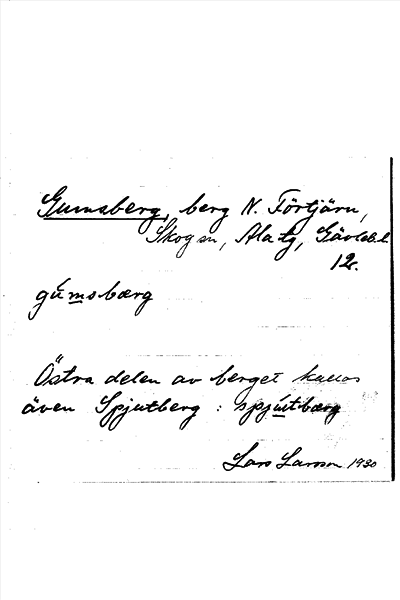 Gumsberg, berg N. Förtjärn,
Skogen, Ala tg, Gävleb.l.
12.
gúmsbærg
Östra delen av berget kallas
även Spjutberg : spjútbærg
Lars Larsson 1930